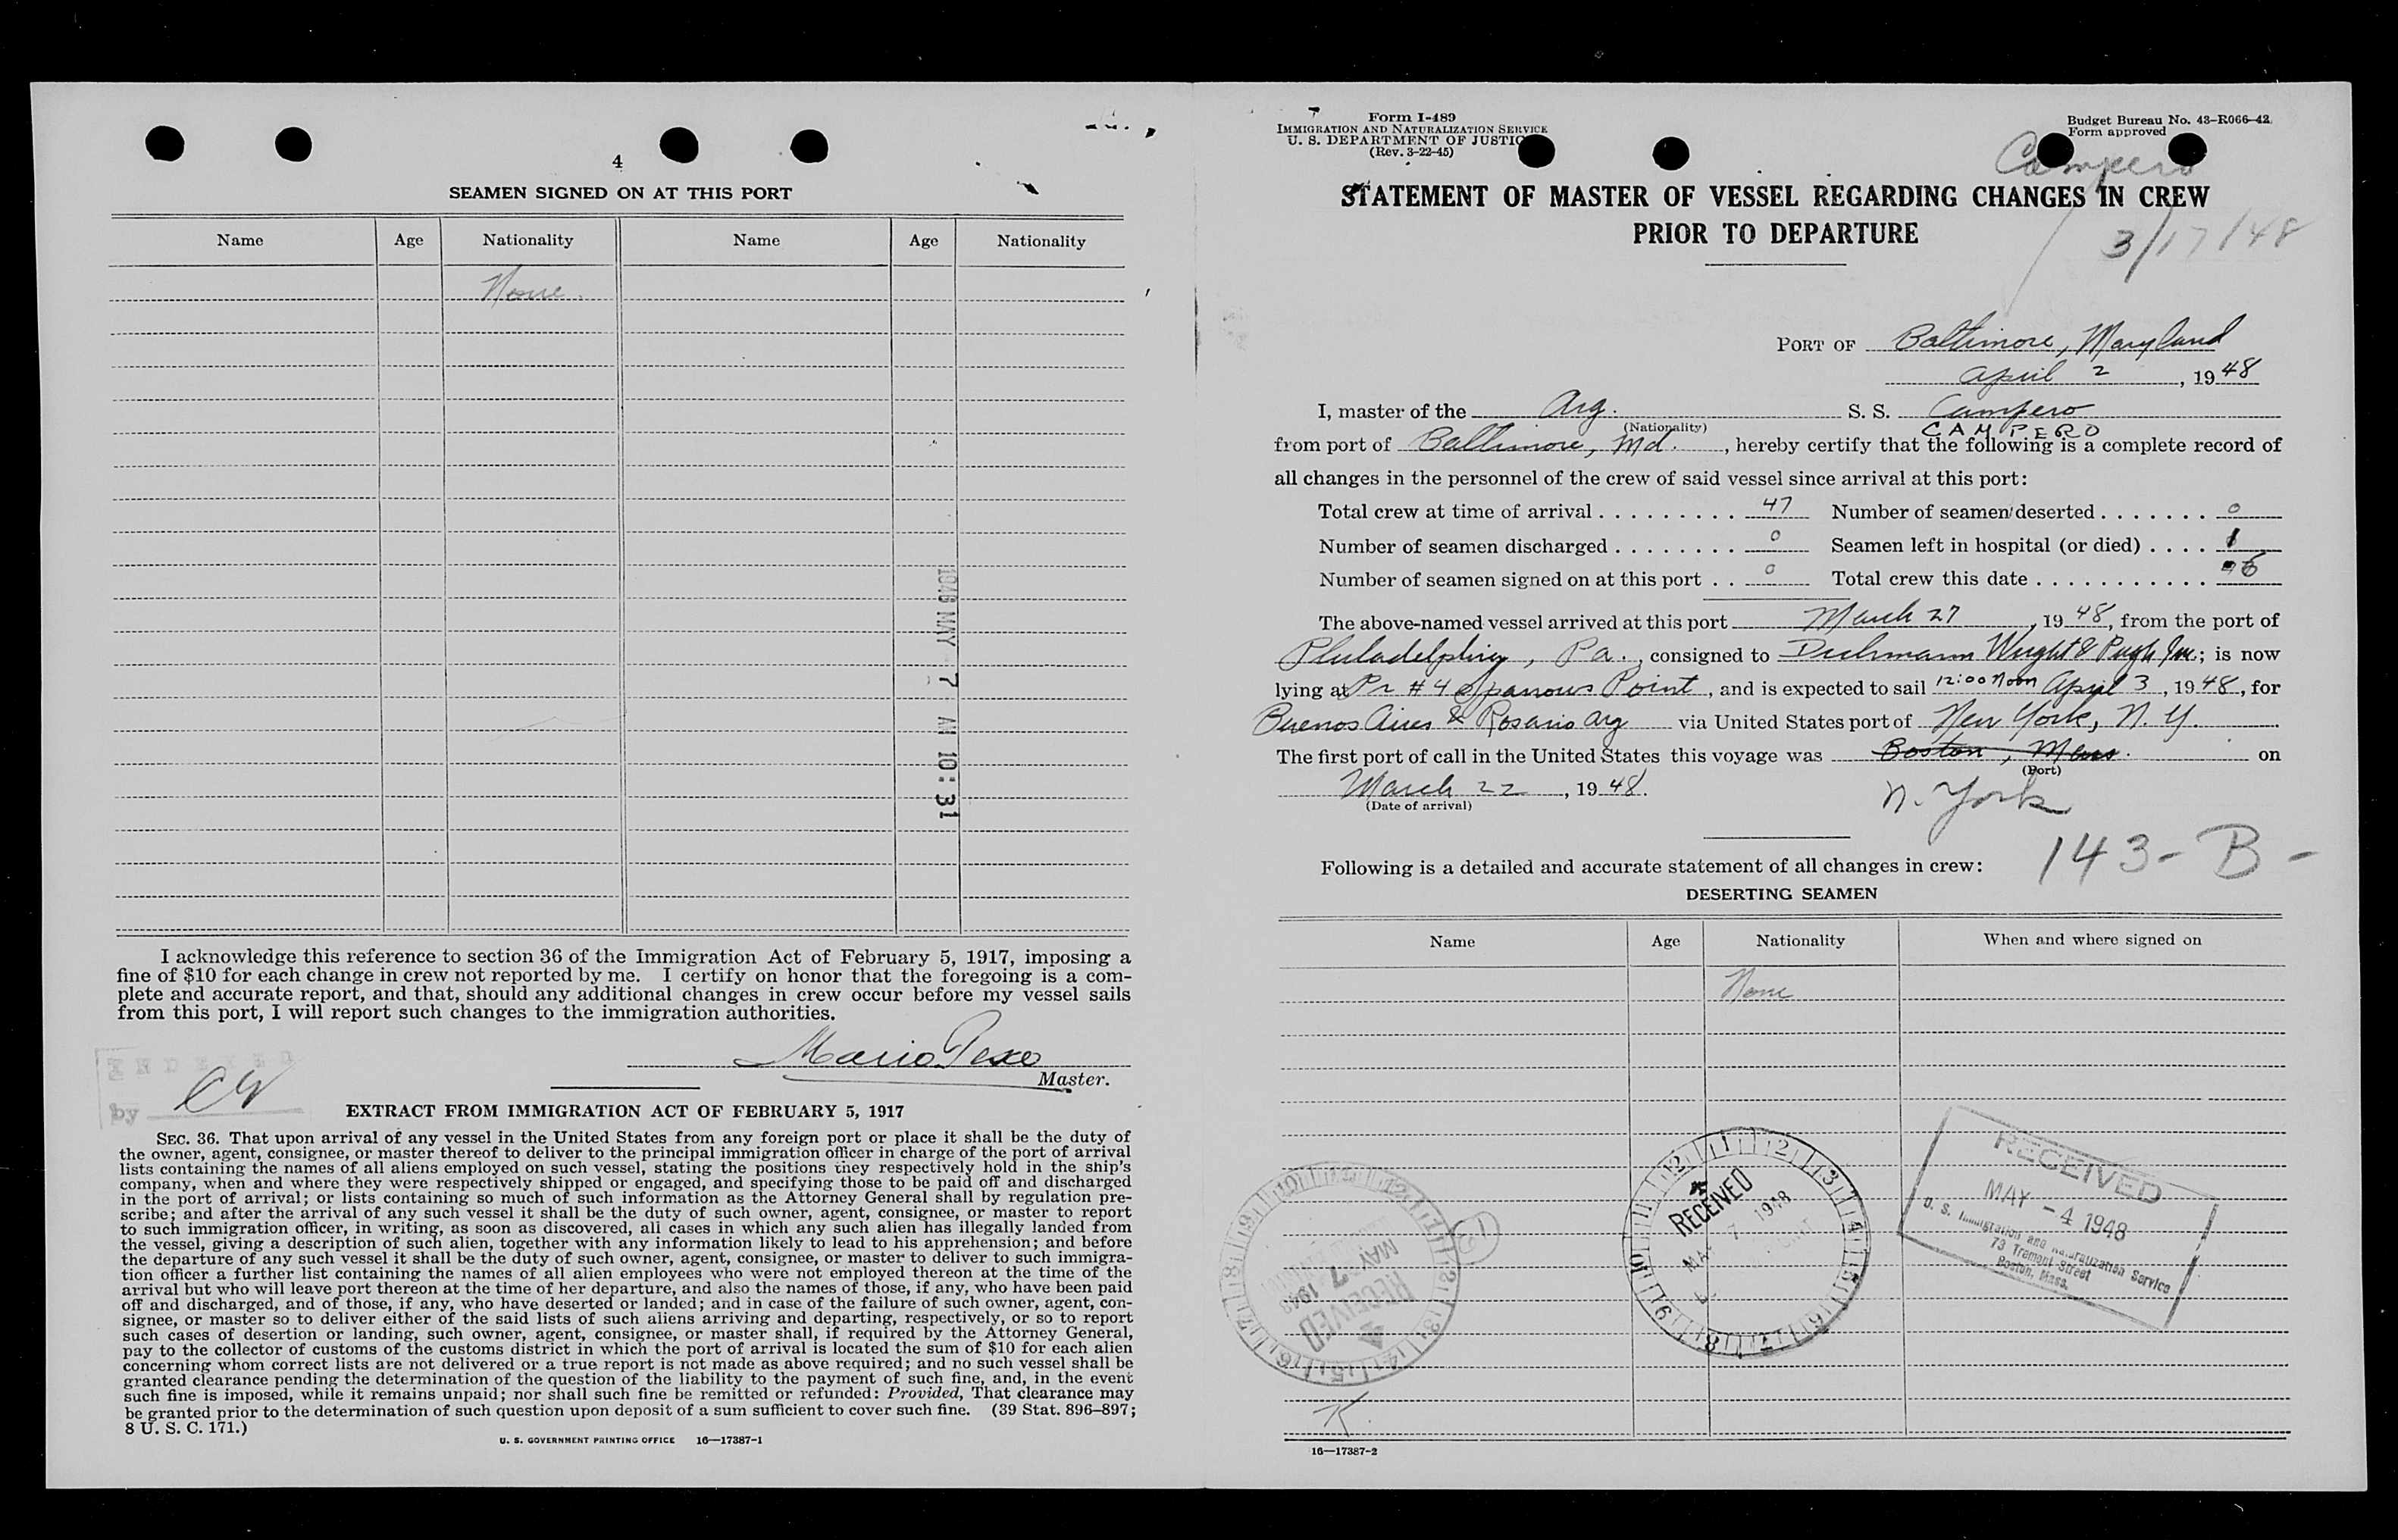 4
SEAMEN SIGNED ON AT THIS PORT
Name Age Nationality Name Age Nationality
None.
1948 MAY 7 AM 10:31
I acknowledge this reference to section 36 of the Immigration Act of February 5, 1917, imposing a
fine of $10 for each change in crew not reported by me. I certify on honor that the foregoing is a com-
plete and accurate report, and that, should any additional changes in crew occur before my vessel sails
from this port, I will report such changes to the immigration authorities.
Mario
Master.
INDEXED
by
EXTRACT FROM IMMIGRATION ACT OF FEBRUARY 5, 1917
SEC. 36. That upon arrival of any vessel in the United States from any foreign port or place it shall be the duty of
the owner, agent, consignee, or master thereof to deliver to the principal immigration officer in charge of the port of arrival
lists containing the names of all aliens employed on such vessel, stating the positions they respectively hold in the ship's
company, when and where they were respectively shipped or engaged, and specifying those to be paid off and discharged
in the port of arrival; or lists containing so much of such information as the Attorney General shall by regulation pre-
scribe; and after the arrival of any such vessel it shall be the duty of such owner, agent, consignee, or master to report
to such immigration officer, in writing, as soon as discovered, all cases in which any such alien has illegally landed from
the vessel, giving a description of such alien, together with any information likely to lead to his apprehension; and before
the departure of any such vessel it shall be the duty of such owner, agent, consignee, or master to deliver to such immigra-
tion officer a further list containing the names of all alien employees who were not employed thereon at the time of the
arrival but who will leave port thereon at the time of her departure, and also the names of those, if any, who have been paid
off and discharged, and of those, if any, who have deserted or landed; and in case of the failure of such owner, agent, con-
signee, or master so to deliver either of the said lists of such aliens arriving and departing, respectively, or so to report
such cases of desertion or landing, such owner, agent, consignee, or master shall, if required by the Attorney General,
pay to the collector of customs of the customs district in which the port of arrival is located the sum of $10 for each alien
concerning whom correct lists are not delivered or a true report is not made as above required; and no such vessel shall be
granted clearance pending the determination of the question of the liability to the payment of such fine, and, in the event
such fine is imposed, while it remains unpaid; nor shall such fine be remitted or refunded: Provided, That clearance may
be granted prior to the determination of such question upon deposit of a sum sufficient to cover such fine. (39 Stat. 896–897;
8 U. S. C. 171.)
U. S. GOVERNMENT PRINTING OFFICE 16—17387-1
Form I-489
IMMIGRATION AND NATURALIZATION SERVICE
U. S. DEPARTMENT OF JUSTIC
(Rev. 3-22-45)
Budget Bureau No. 43-R066-42
Form approved
Campero
STATEMENT OF MASTER OF VESSEL REGARDING CHANGES IN CREW
PRIOR TO DEPARTURE
3/17/48
PORT OF Baltimore, Maryland
April 2, 1948
I, master of the Arg. S. S. Campero
(Nationality) CAMPERO
from port of Baltimore, Md., hereby certify that the following is a complete record of
all changes in the personnel of the crew of said vessel since arrival at this port:
Total crew at time of arrival 47 Number of seamen deserted 0
Number of seamen discharged 0 Seamen left in hospital (or died) 1
Number of seamen signed on at this port 0 Total crew this date 6
The above-named vessel arrived at this port March 27, 1948, from the port of
Philadelphia, Pa., consigned to Dichmann Wright & Pugh Inc; is now
lying at Pr #4 Sparrows Point, and is expected to sail 12:00 Noon April 3, 1948, for
Buenos Aires & Rosario Arg via United States port of New York, N. Y.
The first port of call in the United States this voyage was Boston, Mass. on
(Port)
March 22, 1948.
(Date of arrival)
N. York
143-B-
Following is a detailed and accurate statement of all changes in crew:
DESERTING SEAMEN
Name Age Nationality When and where signed on
None
RECEIVED
MAY 7 1948
RECEIVED
MAY 7 1948
RECEIVED
MAY -4 1948
U. S. Immigration and Naturalization Service
73 Tremont Street
Boston, Mass.
K.
16—17387-2